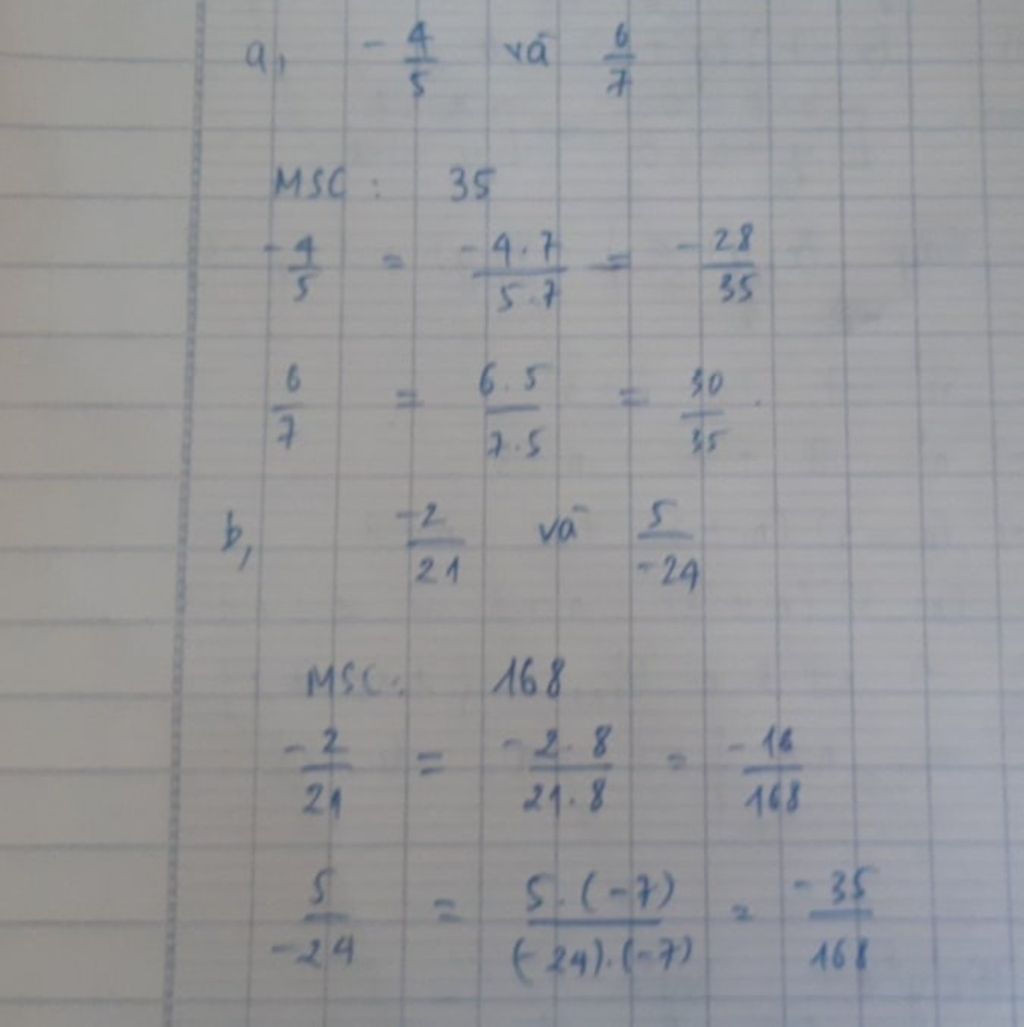 a, -4/5 và 6/7
MSC : 35
-4/5 = -4.7/5.7 = -28/35
6/7 = 6.5/7.5 = 30/35.
b, -2/21 và 5/-24
MSC: 168
-2/21 = -2.8/21.8 = -16/168
5/-24 = 5.(-7)/(-24).(-7) = -35/168